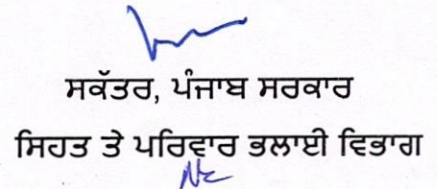 ਸਕੱਤਰ, ਪੰਜਾਬ ਸਰਕਾਰ
ਸਿਹਤ ਤੇ ਪਰਿਵਾਰ ਭਲਾਈ ਵਿਭਾਗ